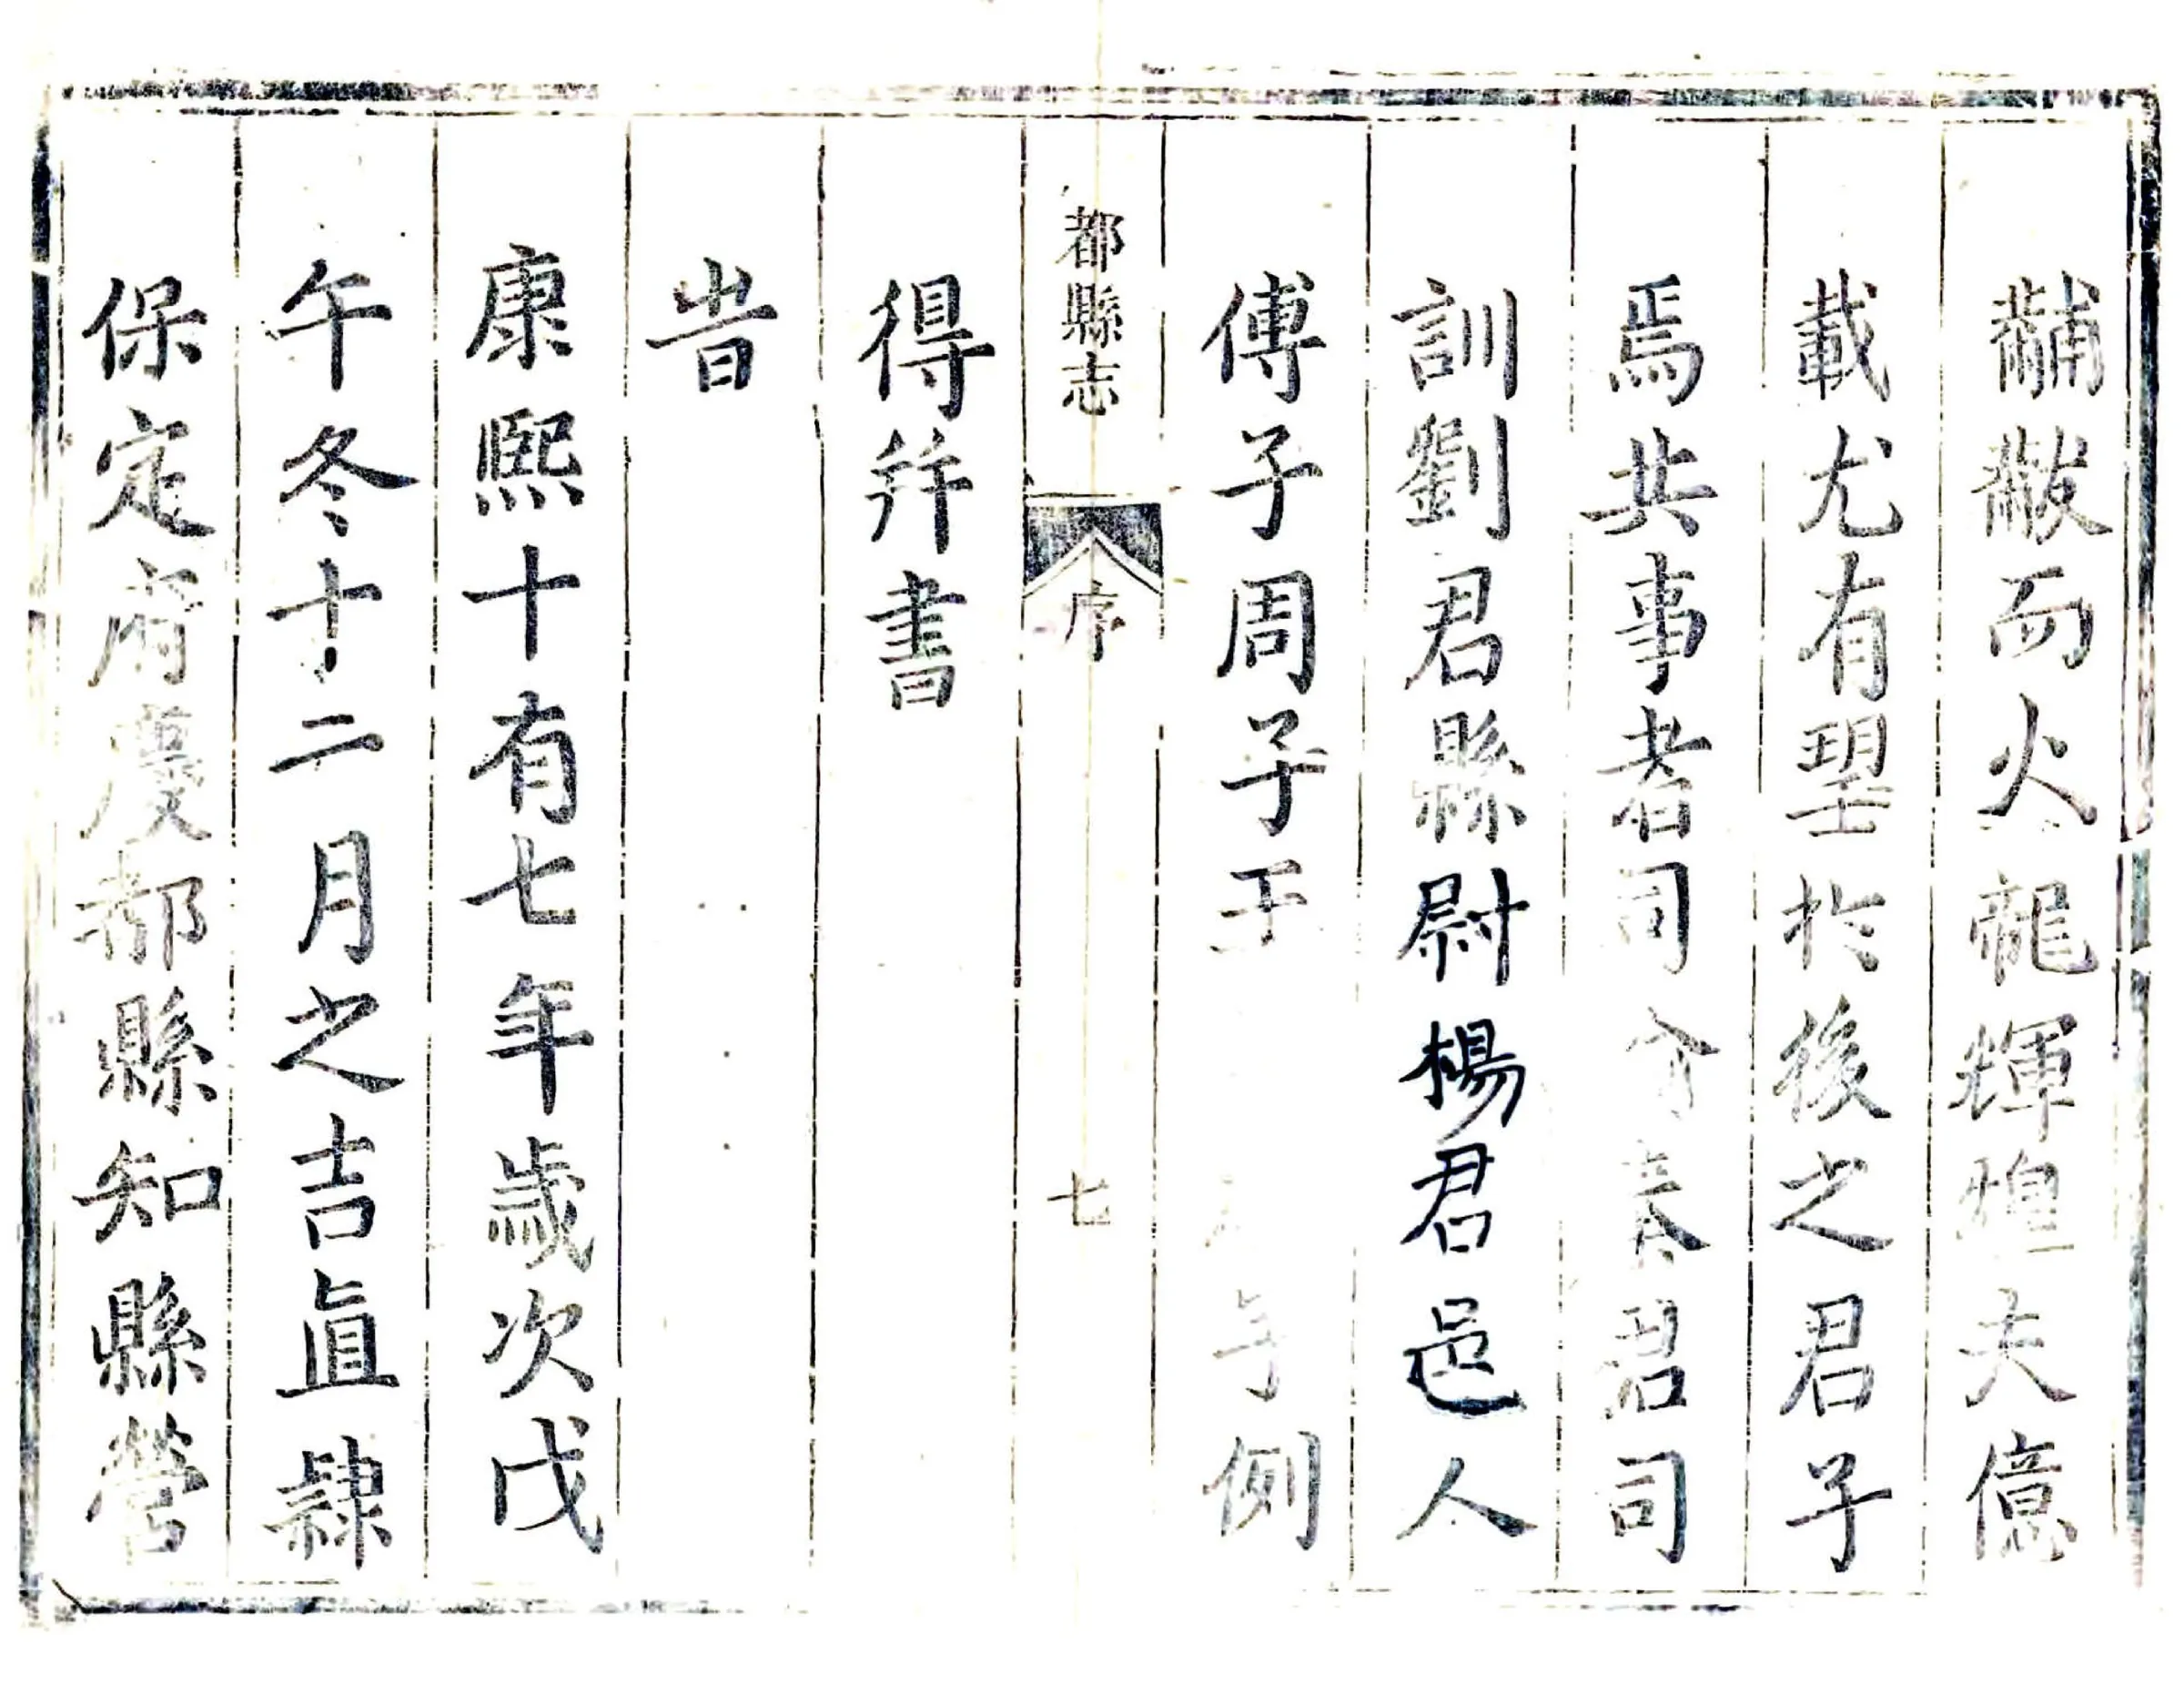 黼黻而火龍輝煌夫億
載尤有朢於後之君子
焉共事者司
君司
訓劉君縣尉楊君邑人
傅子周子于
例
都縣志
序
七
得幷書
旹
康熙十有七年歲次戊
午冬十二月之吉直隸
保定府慶都縣知縣營